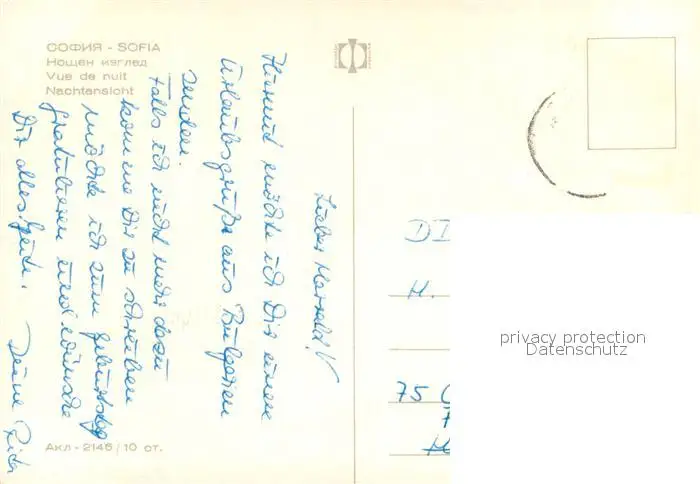 СОФИЯ - SOFIA
Нощен изглед
Vue de nuit
Nachtansicht
Lieber Harald!
Hiermit möchte ich Dir einen
Urlaubsgruß aus Bulgarien
senden.
Falls ich nicht mehr dazu
komme Dir zu schreiben
möchte ich zum Geburtstag
gratulieren und wünsche
Dir alles Gute.
Deine
DI
H.
75 C
7
privacy protection
Datenschutz
Акл - 2146/10 ст.